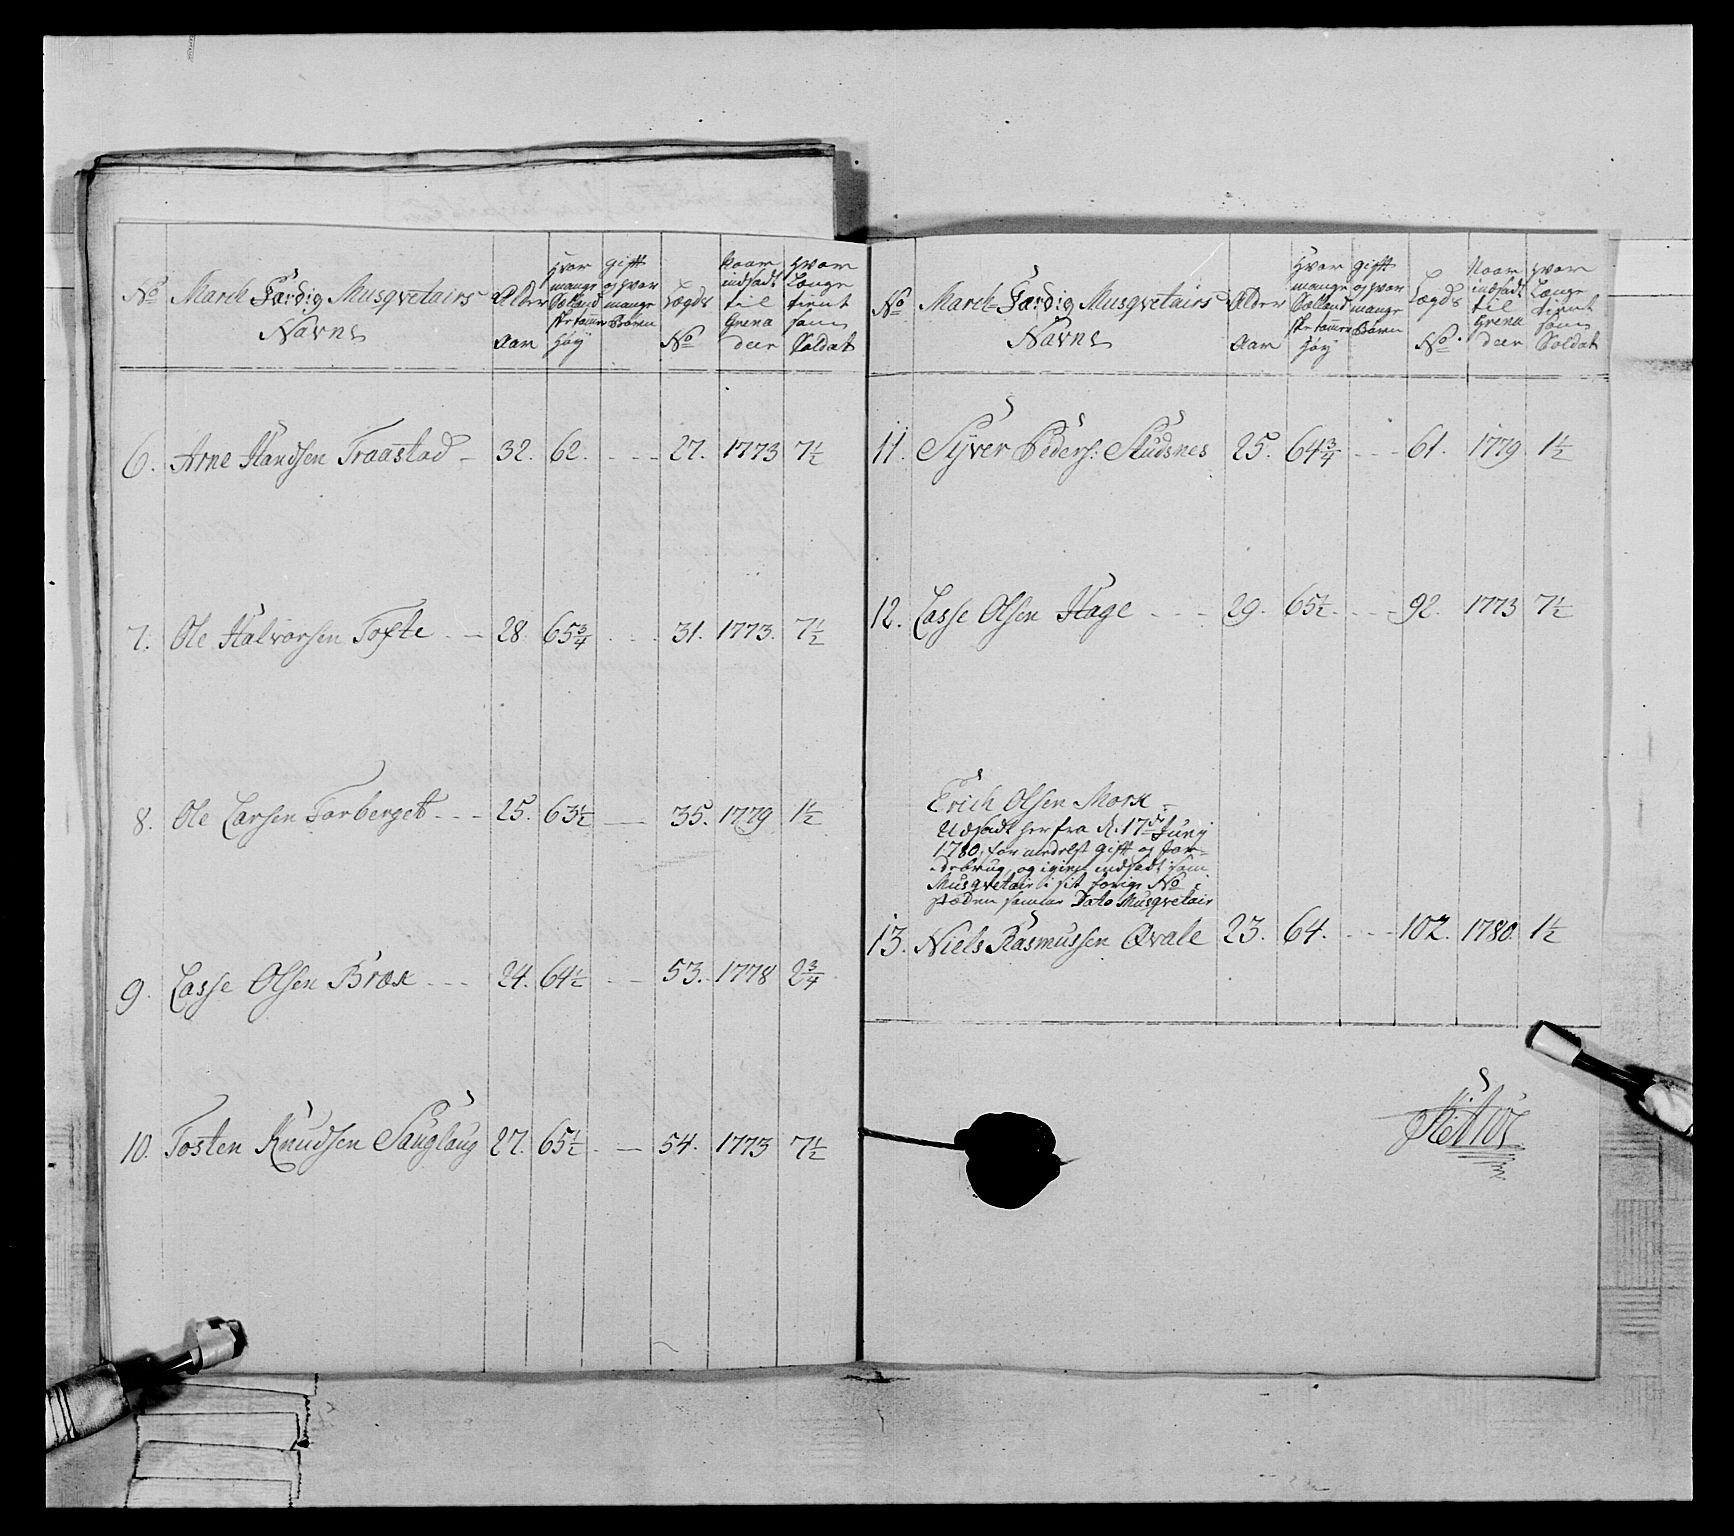 No March Færdig Musqvetairs Navne
Alder Aar
Hvor mange Sælland ske tomme Høy
gift og hvor mange Børn
Lægds No
Naar indsadt til Grena deer
Hvor Længe tient som Soldat
6. Arne Handsen Traastad - 32. 62. - - - 27. 1773 7½
7. Ole Halvorsen Tofte - - 28. 65¾ - - - 31. 1773. 7½
8. Ole Larsen Forberget - - - 25. 63½ - - 35. 1779 1½
9. Lasse Olsen Bræk - - - 24. 64½ - - - 53. 1778 2¾
10. Tosten Knudsen Sauglaug 27. 65½ - - 54. 1773 7½
No March Færdig Musqvetairs Navne
Alder Aar
Hvor mange Sælland ske tommer Høy
gift og hvor mange Børn
Lægds No.
Naar indsadt til Grena deer
Hvor Længe tient som Soldat
11. Syver Peders: Studsnes 25. 64¾ - - - 61. 1779 1½
12. Lasse Olsen Hage - - - 29. 65½ - - - 92. 1773 7½
Erich Olsen Mork -
Udsadt herfra d. 17de Juny
1780, formedelst gift og Jor-
debrug, og igien indsadt som
Musqvetair i sit forige No
stæden samme Dato Musqvetair
13. Niels Rasmussen Qvale 23. 64. - - - 102. 1780. 1½